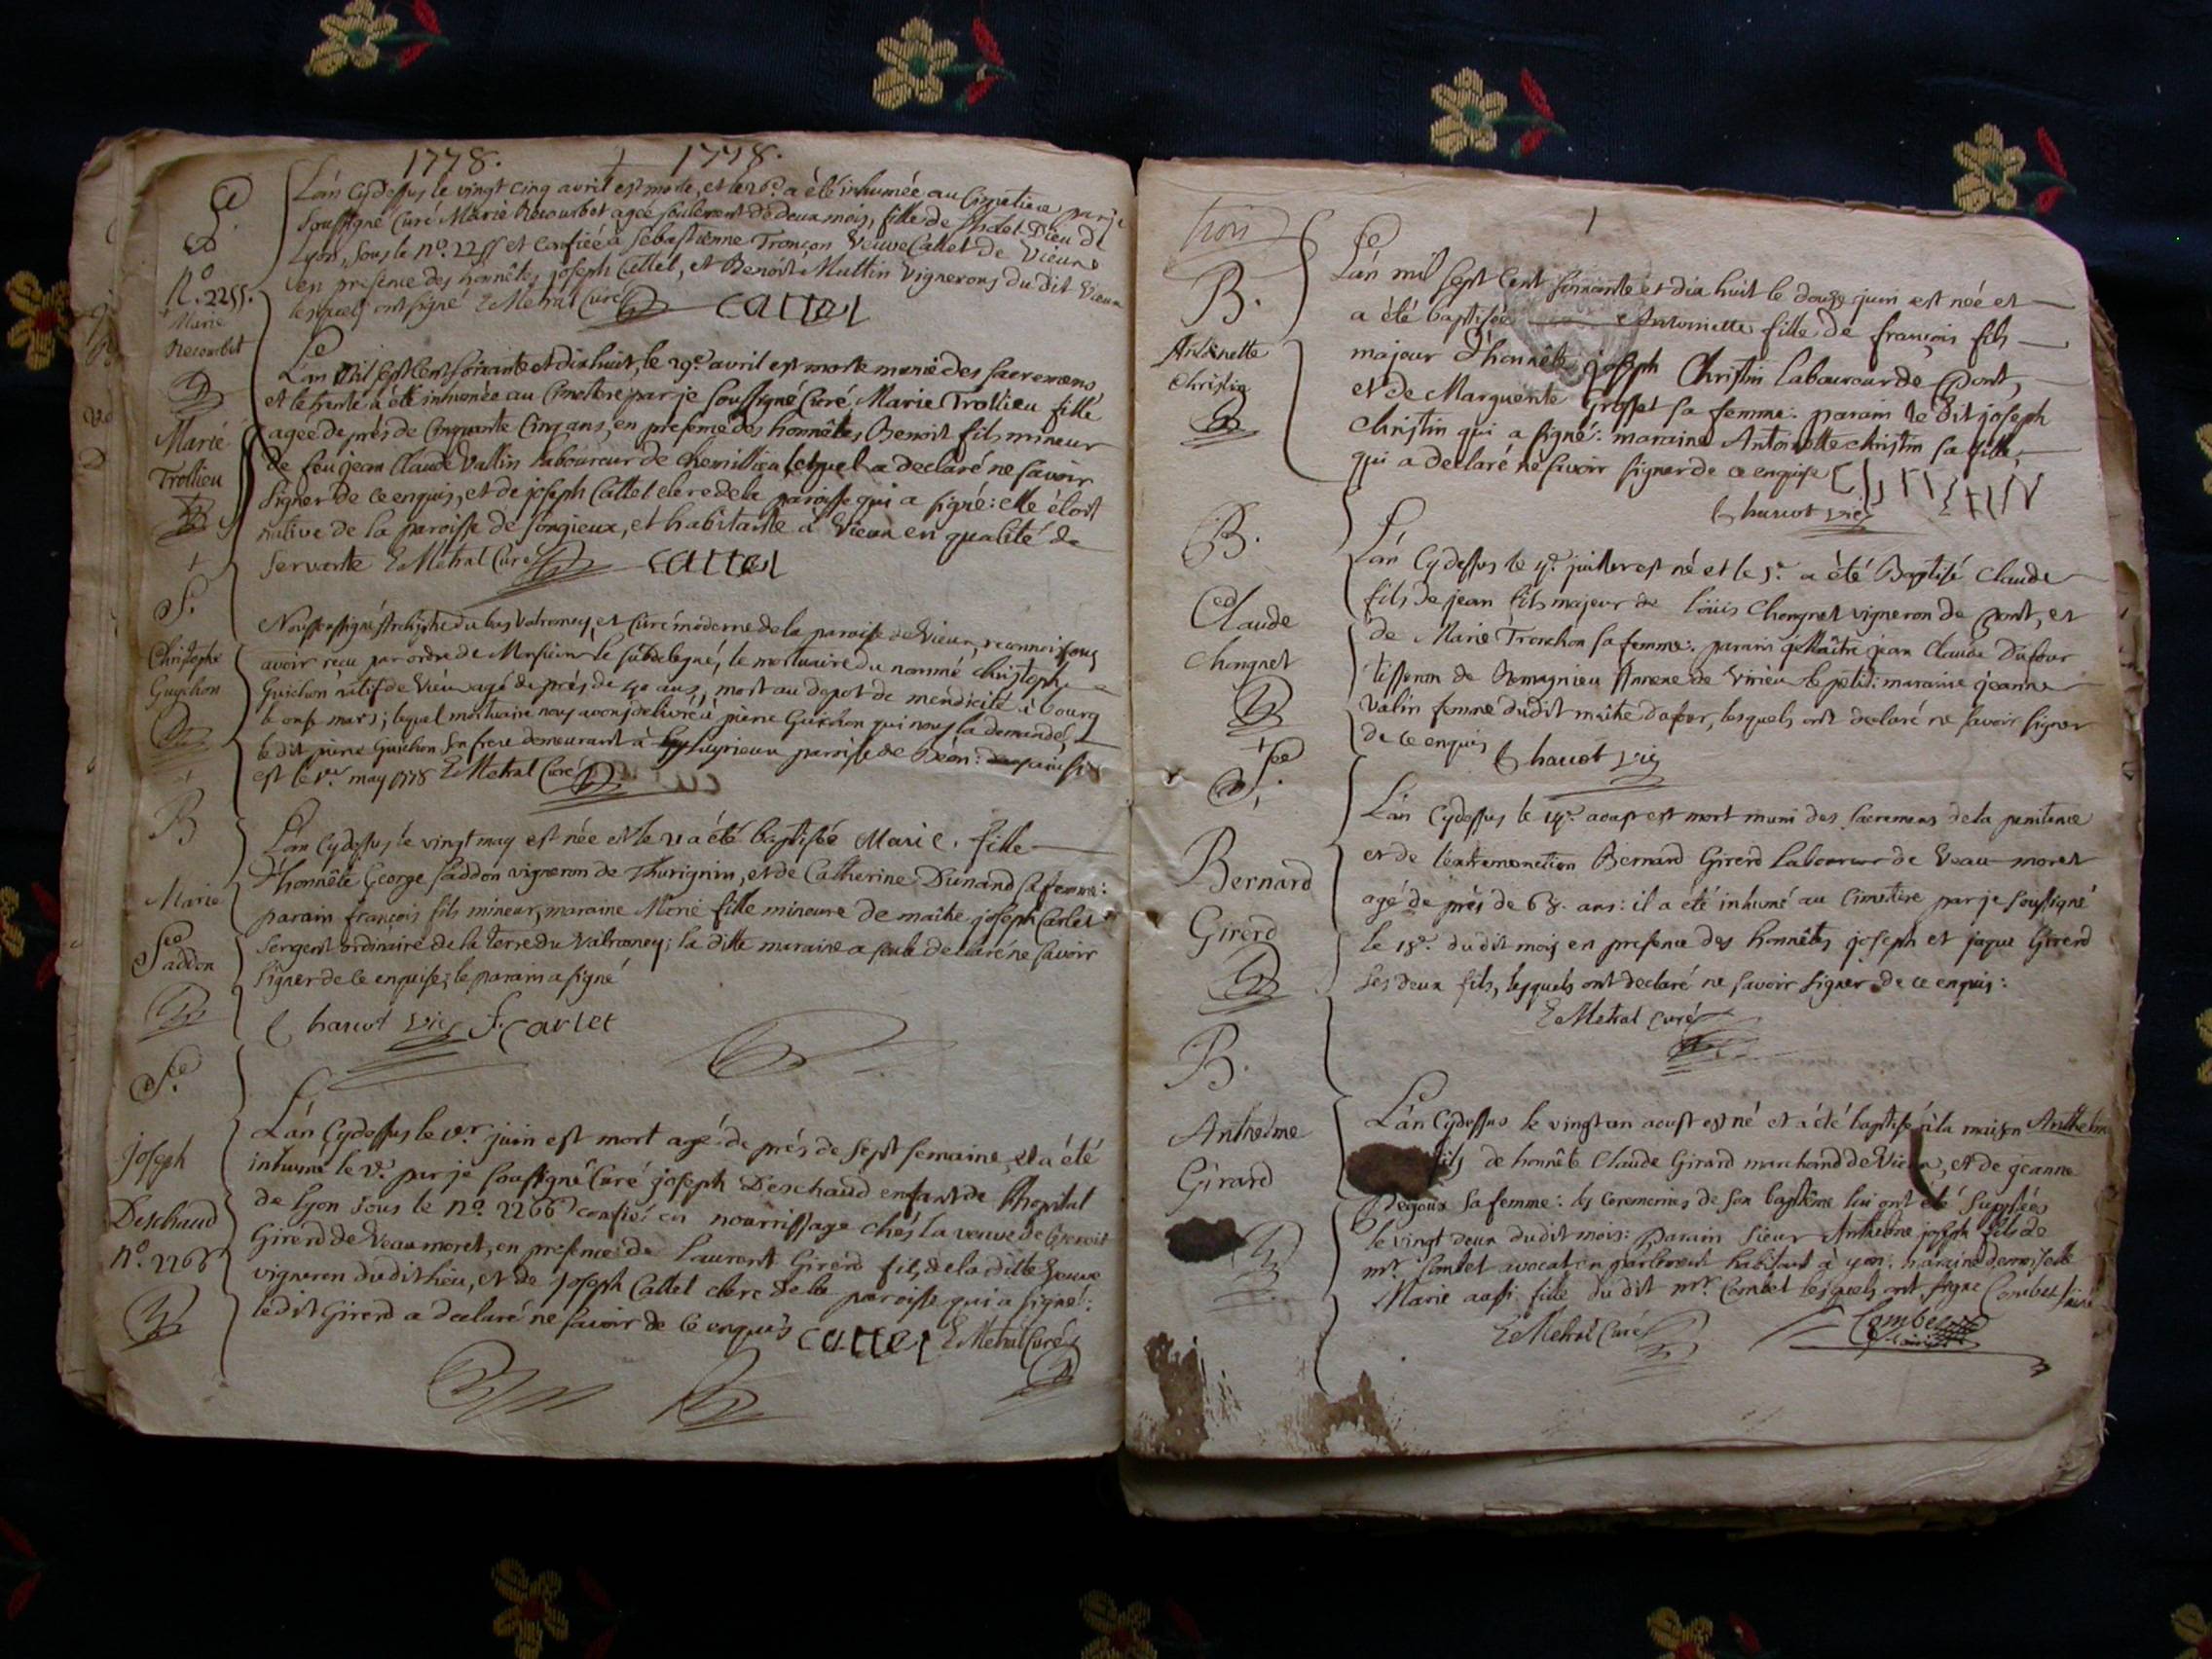 1778. 1778.
S.
N.o 2255.
Marie
Recourbet
L'an cydessus le vingt cinq avril est morte, et le 26.e a été inhumée au Cimetiere par je
soussigné Curé Marie Recourbet agée seulement de deux mois, fille de l'hotel Dieu de
Lyon, sous le N.o 2255 et confiée à sebastienne Tronçon veuve Callet de Vieux
en presence des honnêtes joseph Callet, et Benoit Muttin vignerons du dit Vieux
lesquels ont signé E Metral Curé callet
Marie
Trollieu
L'an mil sept cent soixante et dix huit, le 29.e avril est morte munie des sacremens
et le trente a été inhumée au Cimetiere par je soussigné Curé, Marie Trollieu fille
agée de près de cinquante cinq ans, en presence des honnêtes Benoit fils mineur
de feu jean Claude Vallin laboureur de chemillieu, lequel a declaré ne savoir
signer de ce enquis, et de joseph Callet clerc de la paroisse qui a signé: elle étoit
native de la paroisse de songieux, et habitante à Vieux en qualité de
servante E Metral Curé callet
S.
Christophe
Guichon
Nous soussigné Archiprêtre du bas Valromey, et Curé moderne de la paroisse de Vieux, reconnoissons
avoir reçu par ordre de Monsieur le subdelegué, le mortuaire du nommé christophe
Guichon natif de Vieux agé de près de 40 ans, mort au depot de mendicité à bourg
le onze mars; lequel mortuaire nous avons delivré à pierre Guichon qui nous l'a demandé,
le dit pierre Guichon son frere demeurant à luyrieux paroisse de Béon:
est le 1.er may 1778 E Metral Curé
B
Marie
Saddon
L'an cydessus le vingt may est née et le 21 a été baptisée Marie, fille
d'honnête George Saddon vigneron de Thurignin, et de Catherine Dunand sa femme:
parain françois fils mineur, maraine Marie fille mineure de maître joseph Carlet
sergent ordinaire de la terre du Valromey; la ditte maraine a seule declaré ne savoir
signer de ce enquise; le parain a signé
Charcot vic f. carlet
S.
joseph
Deschaud
N.o 2266
L'an cydessus le 1.er juin est mort agé de près de sept semaine, et a été
inhumé le 2.e par je soussigné Curé joseph Deschaud enfant de l'hopital
de Lyon sous le N.o 2266 confié en nourrissage chés la veuve de Benoit
Girerd de Veaumoret, en presence de laurent Girerd fils de la ditte veuve
vigneron du dit lieu, et de joseph Callet clerc de la paroisse qui a signé:
le dit Girerd a declaré ne savoir de ce enquis callet E Metral Curé
trois
B.
Antoinette
Christin
L'an mil sept cent soixante et dix huit le douze juin est née et
a été baptisée Antoinette fille de françois fils
majeur d'honnête joseph Christin laboureur de Pont,
et de Marguerite Grosset sa femme: parain le dit joseph
Christin qui a signé: maraine Antoinette christin sa fille,
qui a declaré ne savoir signer de ce enquise christin
Charcot vic
B.
Claude
Chongnet
L'an cydessus le 4.e juillet est né et le 5.e a été Baptisé Claude
fils de jean fils majeur de loüis Chongnet vigneron de Pont, et
de Marie Tronchon sa femme: parain maître jean Claude Dufour
tisseran de Romagnieu Annexe de Virieu le petit: maraine jeanne
Valin femme du dit maître Dafour, lesquels ont declaré ne savoir signer
de ce enquis Charcot vic
S.
Bernard
Girerd
L'an cydessus le 14.e aoust est mort muni des sacremens de la penitence
et de l'extremonction Bernard Girerd laboureur de Veaumoret
agé de près de 68. ans: il a été inhumé au cimetiere par je soussigné
le 15.e du dit mois en presence des honnêtes joseph et jaque Girerd
ses deux fils, lesquels ont declaré ne savoir signer de ce enquis:
E Metral curé
B.
Anthelme
Girard
L'an cydessus le vingt un aoust est né et a été baptisé à la maison Anthelme
fils de honnête Claude Girard marchand de Vieux, et de jeanne
Degoux sa femme: les ceremonies de son baptême lui ont été supplées
le vingt deux du dit mois: parain sieur Anthelme joseph fils de
mr. Combet avocat en parlement habitant à yon: maraine demoiselle
Marie aussi fille du dit mr. Combet lesquels ont signé Combet
E Metral Curé Combet